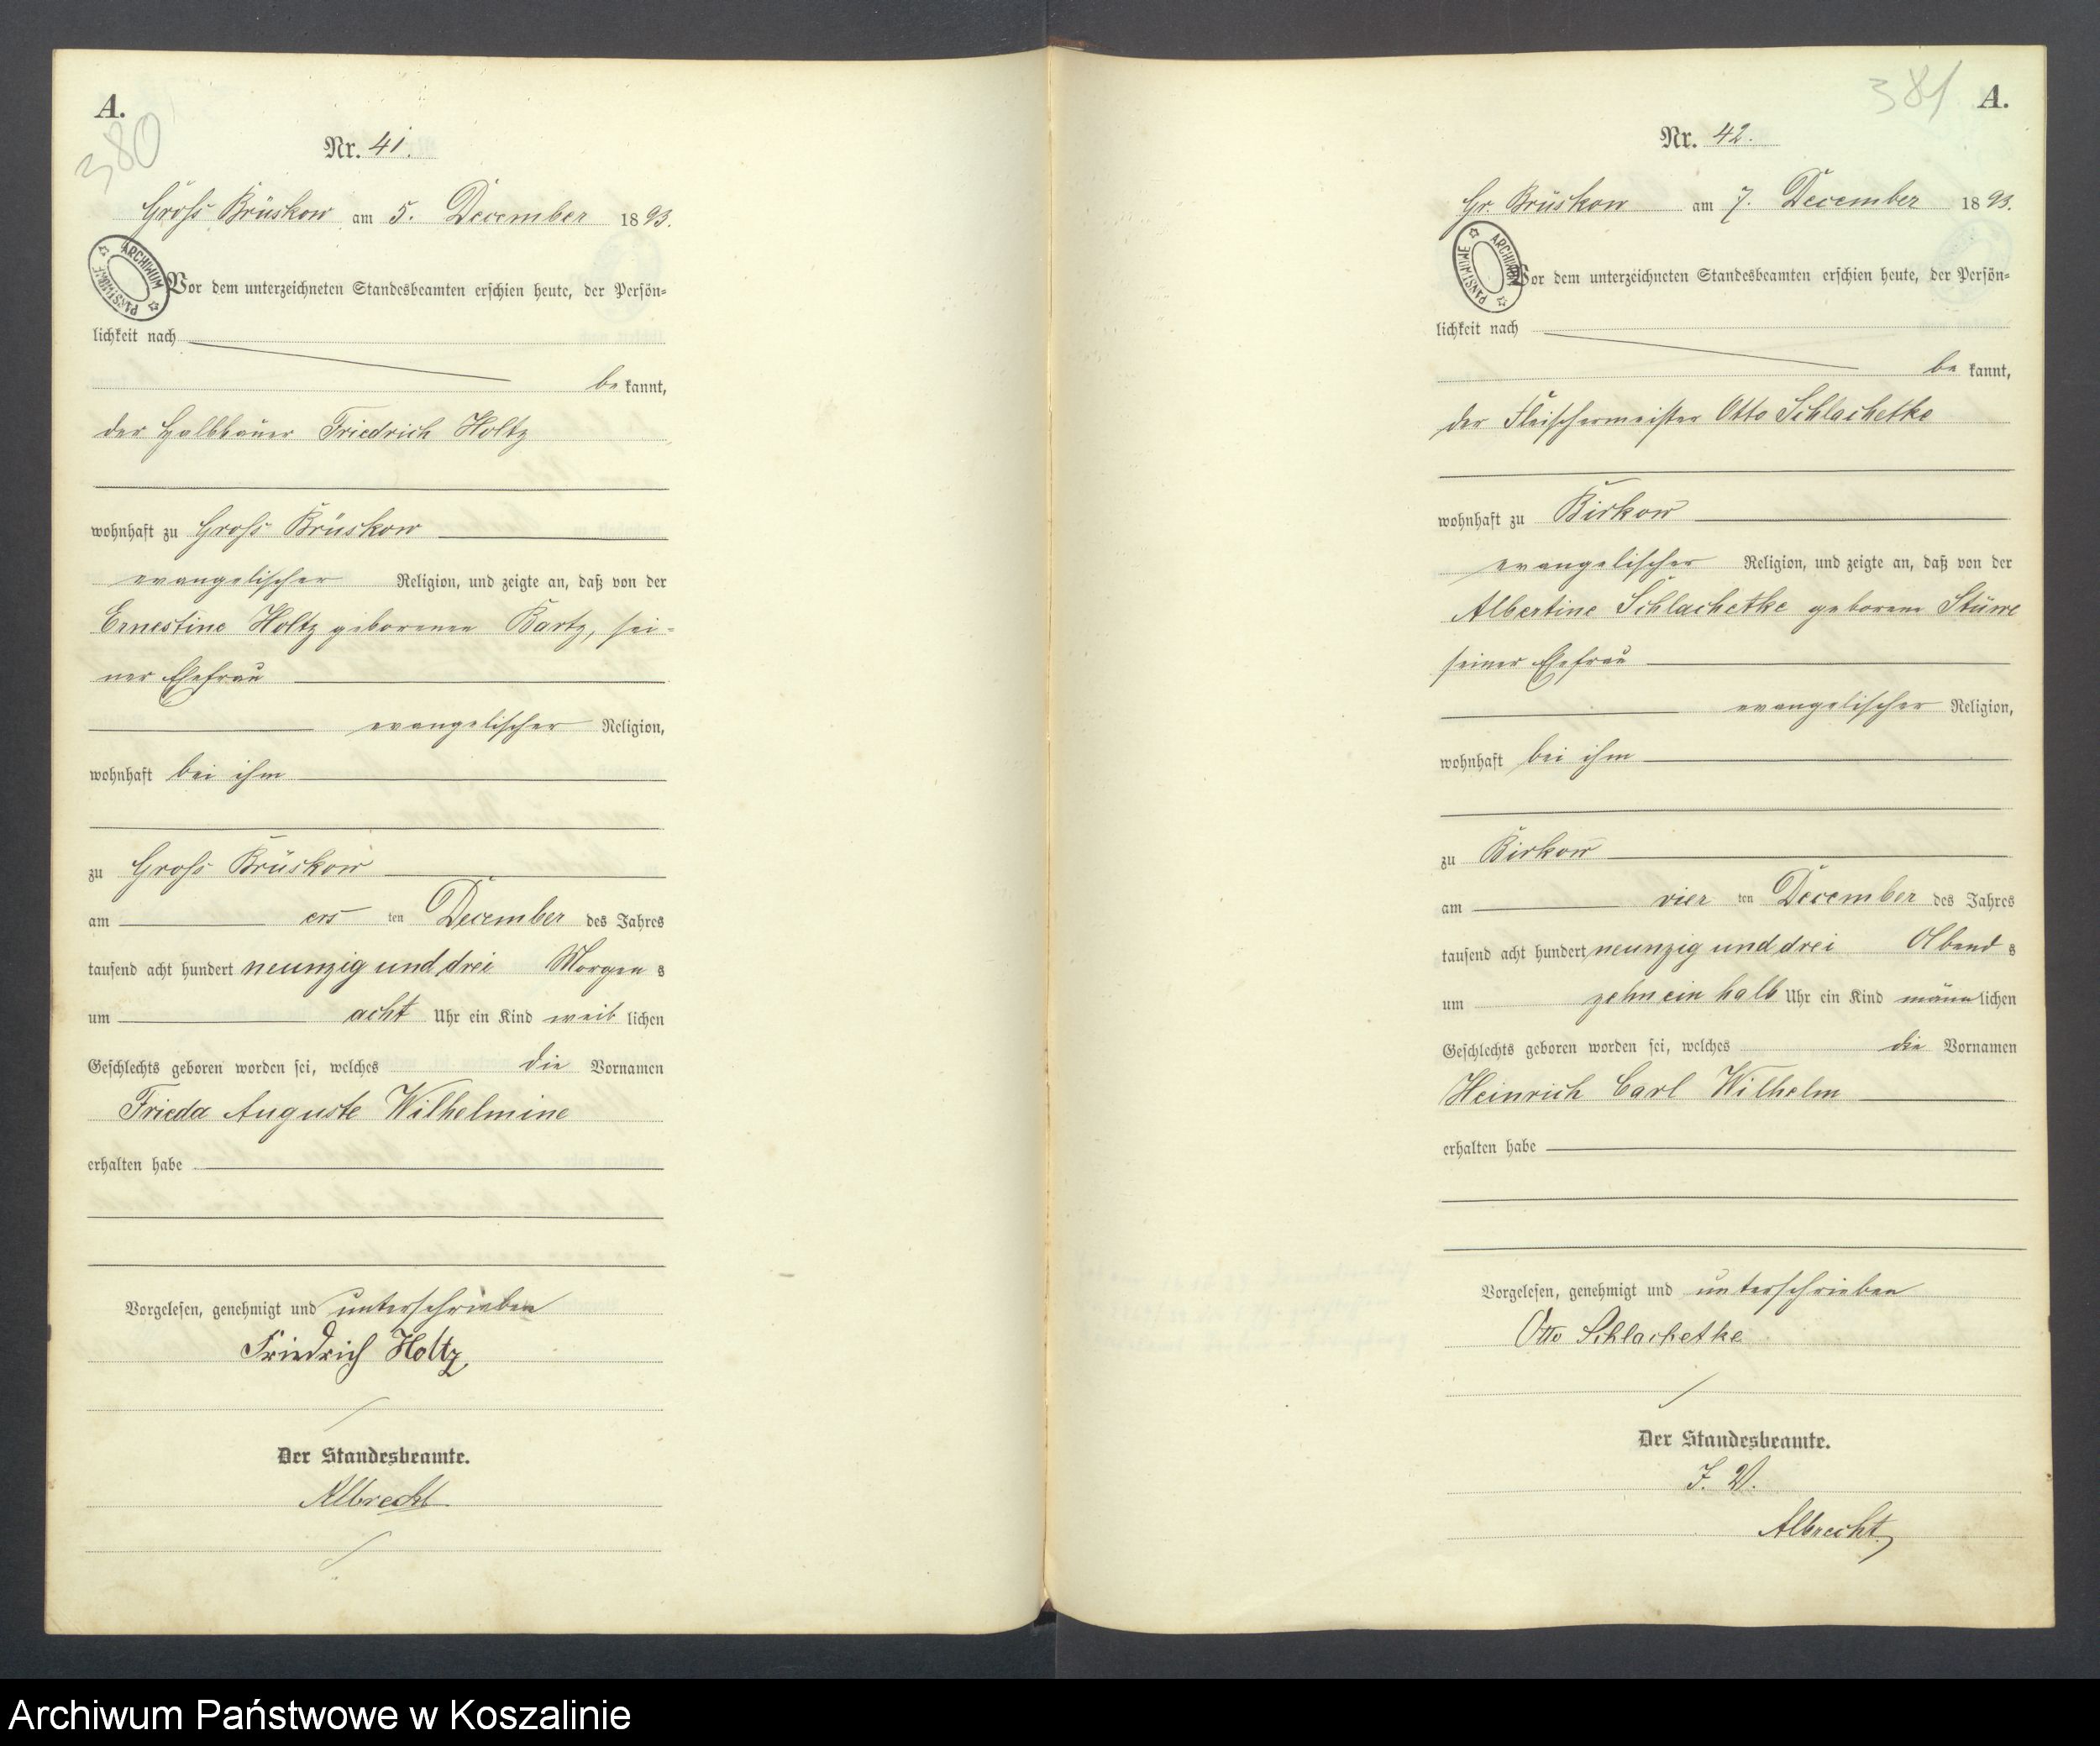 A.
380
Nr. 41.
Groß Brüskow am 5. December 1893.
ARCHIWUM PAŃSTWOWE
Vor dem unterzeichneten Standesbeamten erschien heute, der Persön=
lichkeit nach
be kannt,
der Halbbauer Friedrich Holtz
wohnhaft zu Groß Brüskow
evangelischer Religion, und zeigte an, daß von der
Ernestine Holtz geborenen Bartz, sei=
ner Ehefrau
evangelischer Religion,
wohnhaft bei ihm
zu Groß Brüskow
am ers ten December des Jahres
tausend acht hundert neunzig und drei Morgen s
um acht Uhr ein Kind weib lichen
Geschlechts geboren worden sei, welches die Vornamen
Frieda Auguste Wilhelmine
erhalten habe
Vorgelesen, genehmigt und unterschrieben
Friedrich Holtz
Der Standesbeamte.
Albrecht
381
A.
Nr. 42.
Gr. Brüskow am 7. December 1893.
ARCHIWUM PAŃSTWOWE
Vor dem unterzeichneten Standesbeamten erschien heute, der Persön=
lichkeit nach
be kannt,
der Fleischermeister Otto Schlachetke
wohnhaft zu Birkow
evangelischer Religion, und zeigte an, daß von der
Albertine Schlachetke geborene Stüwe
seiner Ehefrau
evangelischer Religion,
wohnhaft bei ihm
zu Birkow
am vier ten December des Jahres
tausend acht hundert neunzig und drei Abend s
um zehn ein halb Uhr ein Kind männ lichen
Geschlechts geboren worden sei, welches die Vornamen
Heinrich Carl Wilhelm
erhalten habe
Vorgelesen, genehmigt und unterschrieben
Otto Schlachetke
Der Standesbeamte.
J. V.
Albrecht.
Archiwum Państwowe w Koszalinie